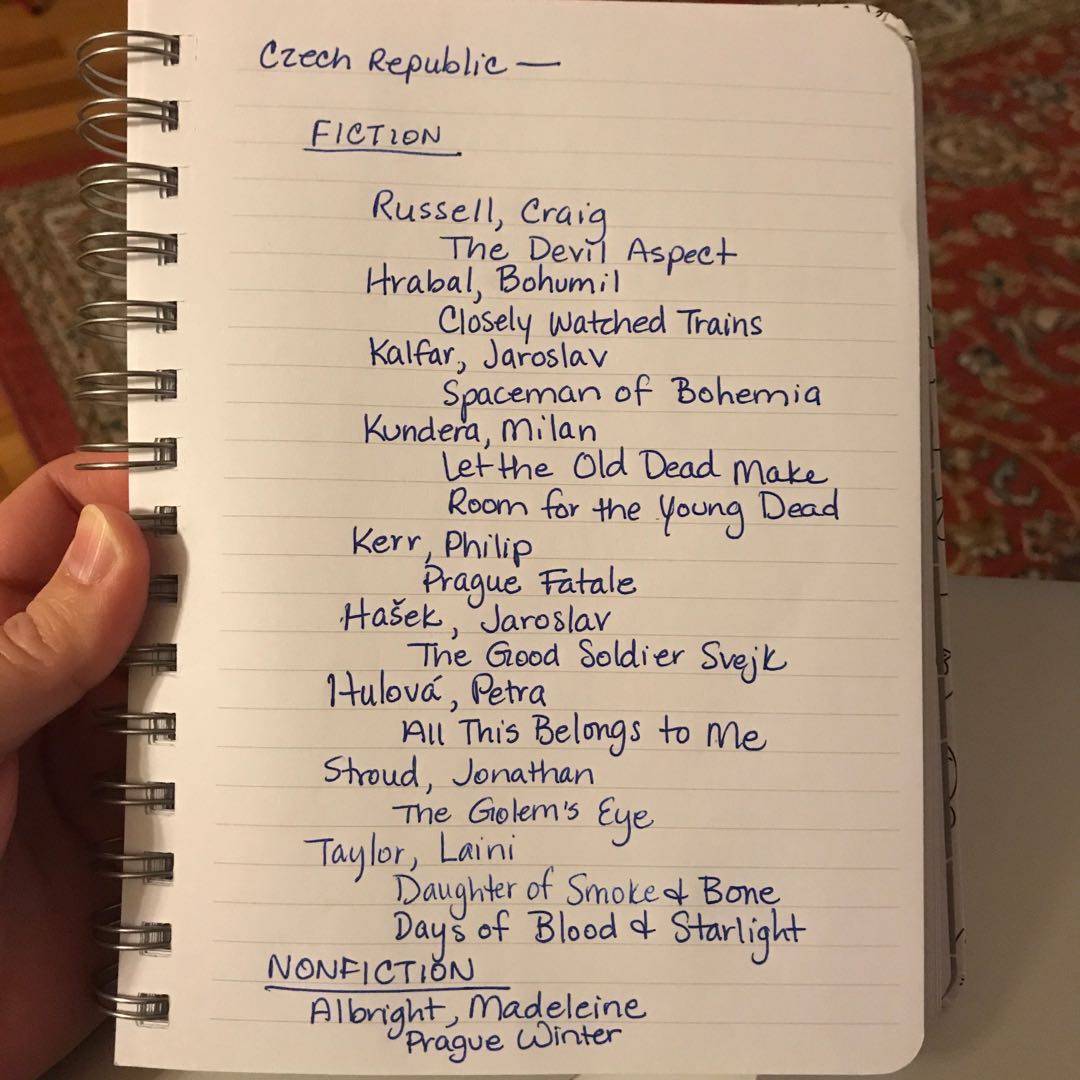 Czech Republic —
FICTION
Russell, Craig
The Devil Aspect
Hrabal, Bohumil
Closely Watched Trains
Kalfar, Jaroslav
Spaceman of Bohemia
Kundera, Milan
Let the Old Dead Make
Room for the Young Dead
Kerr, Philip
Prague Fatale
Hašek, Jaroslav
The Good Soldier Svejk
Hulová, Petra
All This Belongs to Me
Stroud, Jonathan
The Golem's Eye
Taylor, Laini
Daughter of Smoke & Bone
Days of Blood & Starlight
NONFICTION
Albright, Madeleine
Prague Winter